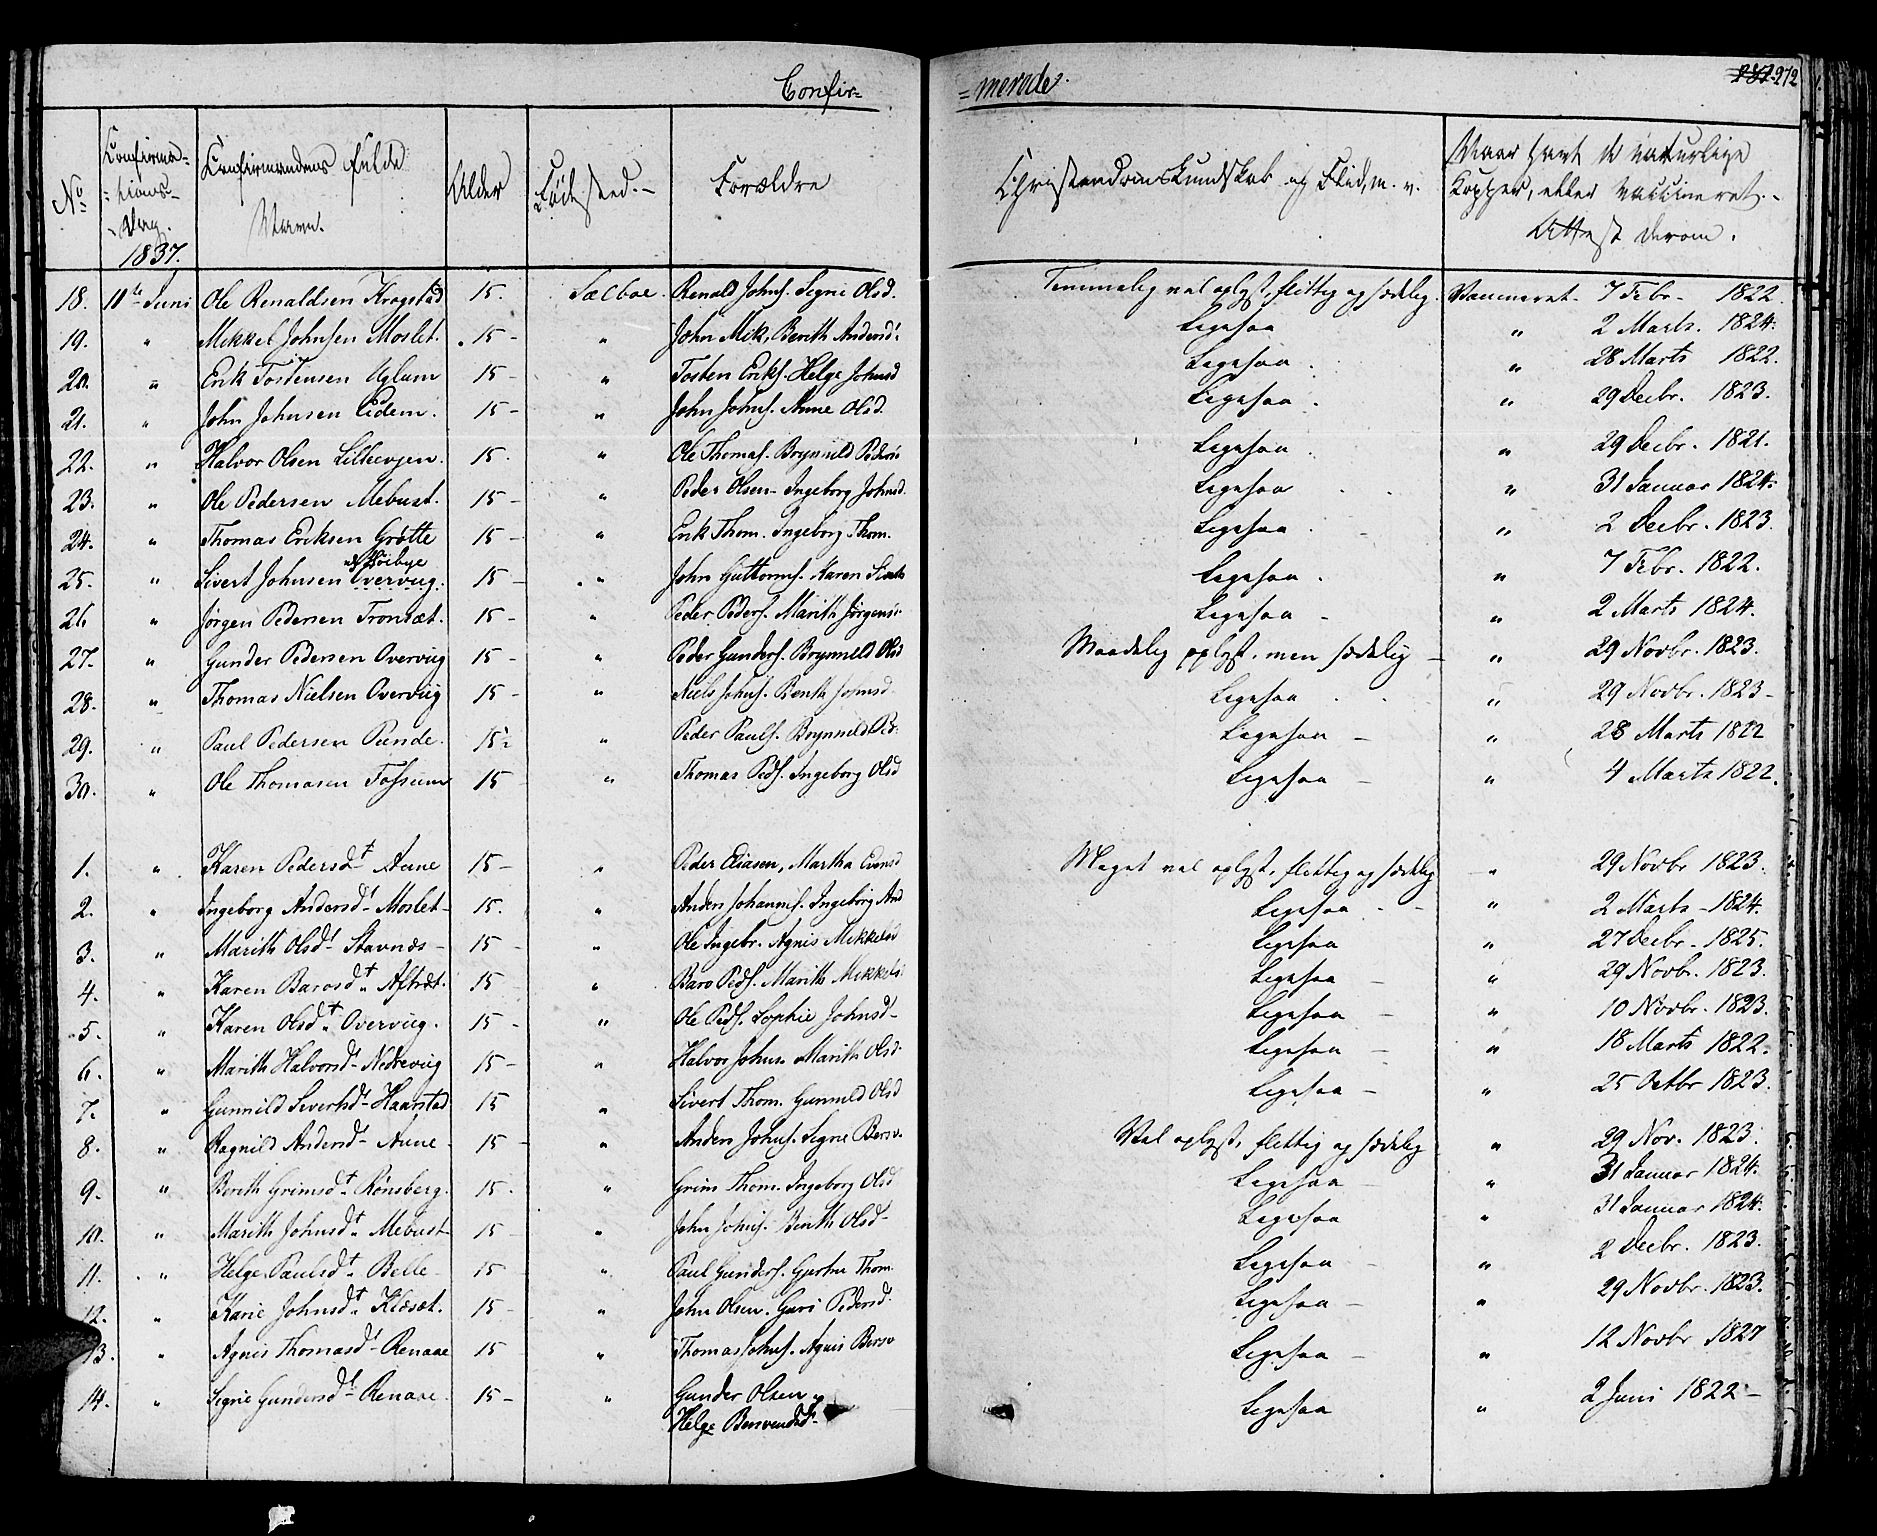 Confir=
=merede.
272
No
Confirma-
tions-
Dag.
1837.
Confirmandens fulde
Navn.
Alder
Fødested.-
Forældre
Christendomskundskab og Flid, m. v.
Naar havt de naturlige
Kopper, eller vaccineret.-
Attest derom.
18. 11te Juni Ole Renaldsen Kragstad 15. Sælboe. Renald Johns. Segne Olsd. Temmelig vel oplyst, flittig og sædelig. Vaccineret. 7 Febr- 1822.
19. " Mikkel Johnsen Moslet. 15- " John Mik, Berith Andersd. Ligesaa " 2 Marts. 1824.
20. " Erik Tostensen Uglum 15 " Tosten Eriks. Helge Johnsd Ligesaa. " 28 Marts 1822.
21. " John Johnsen Eidem. 15- " John Johns. Anne Olsd. Ligesaa. " 29 Decbr. 1823.
22. " Halvor Olsen Lilleevjen. 15. " Ole Thomas. Brynnild Peders Ligesaa. " 29 Decbr. 1821.
23. " Ole Pedersen Mebust. 15- " Peder Olsen- Ingeborg Johnsd. Ligesaa " 31 Januar 1824.
24. " Thomas Eriksen Grøtte 15- " Erik Thom. Ingeborg Thom. Ligesaa. " 2 Decbr. 1823.
25. " Sivert Johnsen Overvug. 15- " John Guttorms. Karen Ligesaa. " 7 Febr. 1822.
26 " Jørgen Pedersen Tronsæt. 15- " Peder Peders. Marith Jørgens. Ligesaa- " 2 Marts 1824.
27. " Gunder Pedersen Overvug 15- " Peder Gunders. Brynnild Olsd Maadelig oplyst, men sædelig- " 29 Novbr. 1823.
28. " Thomas Nielsen Overvug 15- " Niels Johns. Berith Johnsd Ligesaa. " 29 Novbr. 1823-
29. " Paul Pedersen Punde. 15½ " Peder Pauls. Brynnild Ped. Ligesaa- " 28 Marts 1822
30. " Ole Thomasen Fossum 15- " Thomas Peds. Ingeborg Olsd Ligesaa- " 4 Marts 1822.
1. " Karen Pedersdt Aune 15- " Peder Eliasen, Martha Evensd Meget vel oplyst, flittig og sædelig " 29 Novbr 1823.
2. " Ingeborg Andersdt- Moslet- 15. " Anders Johanns. Ingeborg And Ligesaa- " 2 Marts- 1824.
3. " Marith Olsdt Stavnæs- 15- " Ole Ingebr. Agnis Mikkelsd Ligesaa " 27 Decbr- 1825.
4. " Karen Barosdt Aftræt. 15 " Baro Peds. Marith Mikkels. Ligesaa- " 29 Novbr. 1823.
5. " Karen Olsdt Overvug. 15- " Ole Peds. Sophie Johnsd- Ligesaa- " 10 Novbr. 1823.
6. " Marith Halvorsdt- Nedrevug 15- " Halvor Johns. Marith Olsd. Ligesaa- " 18 Marts 1822.
7. " Gunnild Sivertsdt- Haarstad 15 " Sivert Thom. Gunnild Olsd Ligesaa- " 25 Octbr 1823.
8. " Ragnild Andersdt- Aune- 15- " Anders Johns. Segne Bersv. Vel oplyst, flittig og sædelig " 29 Nov. 1823.
9. " Berith Grimsdt Rønsberg. 15. " Grim Thom. Ingeborg Olsd Ligesaa- " 31 Januar 1824.
10. " Marith Johnsdt Mebust- 15- " John Johns. Berith Olsd- Ligesaa " 31 Januar 1824.
11. " Helge Paulsdt Belle- 15 " Paul Gunders. Gjertru Thom. Ligesaa- " 2 Decbr. 1823.
12. " Karie Johnsdt Klæsæt. 15- " John Olsen. Guri Pedersd. Ligesaa- " 29 Novbr. 1823.
13. " Agnis Thomasdt- Renaae 15 " Thomas Johns. Agnis Bersv Ligesaa- " 12 Novbr 1827
14. " Segrie Gundersdt- Renaae. 15- " Gunder Olsen Ligesaa " 2 Juni 1822-
Helge Bersvendsdt-